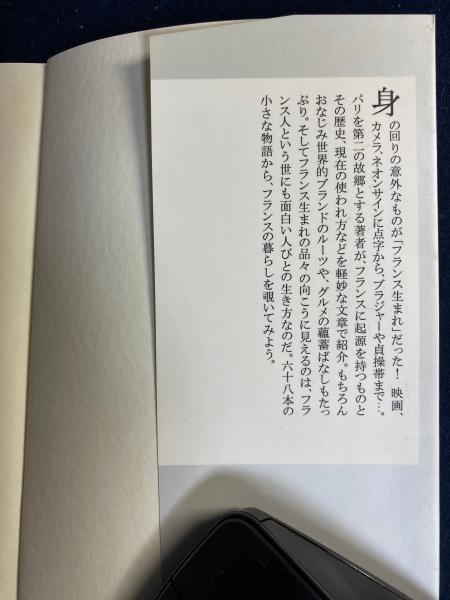 身の回りの意外なものが「フランス生まれ」だった！ 映画、
カメラ、ネオンサインに点字から、ブラジャーや貞操帯まで…。
パリを第二の故郷とする著者が、フランスに起源を持つものと
その歴史、現在の使われ方などを軽妙な文章で紹介。もちろん
おなじみ世界的ブランドのルーツや、グルメの蘊蓄ばなしもたっ
ぷり。そしてフランス生まれの品々の向こうに見えるのは、フラ
ンス人という世にも面白い人びとの生き方なのだ。六十八本の
小さな物語から、フランスの暮らしを覗いてみよう。